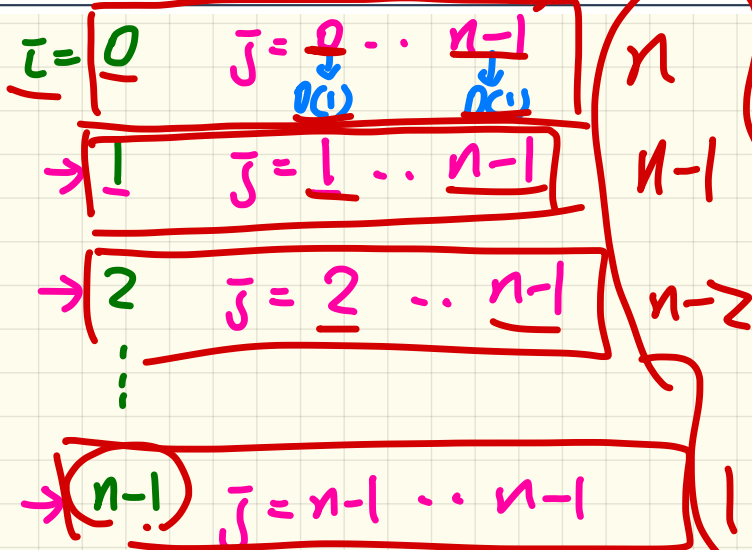 i = 0 j = 0 .. n-1 n
n(1) n(1)
1 j = 1 .. n-1 n-1
2 j = 2 .. n-1 n-2
n-1 j = n-1 .. n-1 1